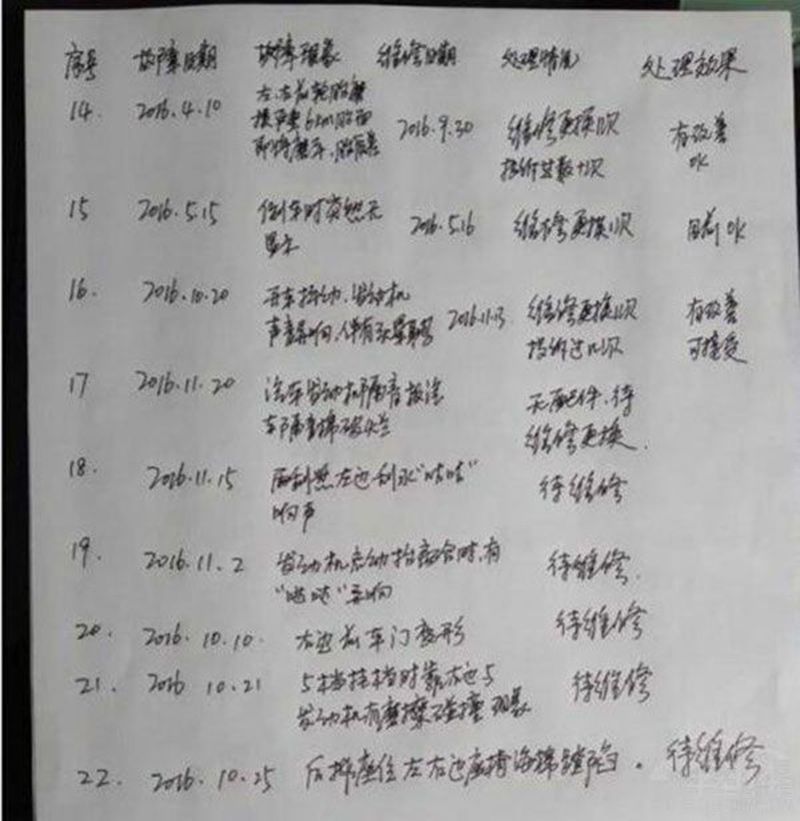 序号 故障日期 故障现象 维修日期 处理情况 处理效果
14. 2016.4.10 左、右前轮胎 2016.9.30 维修更换1次 有改善
投诉总数十次 OK
15 2016.5.15 倒车时突然无 2016.5.16 维修更换1次 目前OK
显示
16. 2016.10.20 开车抖动、发动机 2016.11.13 维修更换1次 有改善
声音异响,伴有 投诉过几次 可接受
17 2016.11.20 汽车发动机隔音板 无配件、待
车隔音棉破烂 维修更换.
18. 2016.11.15 雨刮器左边刮水"咕咕" 待维修
响声
19. 2016.11.2 发动机启动抬离合时,有 待维修.
"哒哒"异响
20. 2016.10.10. 右边前车门变形 待维修
21. 2016 10.21 5档挂档时靠右边5 待维修
发动机有摩擦碰撞现象
22. 2016.10.25 后排座位左右边座椅海绵塌陷. 待维修